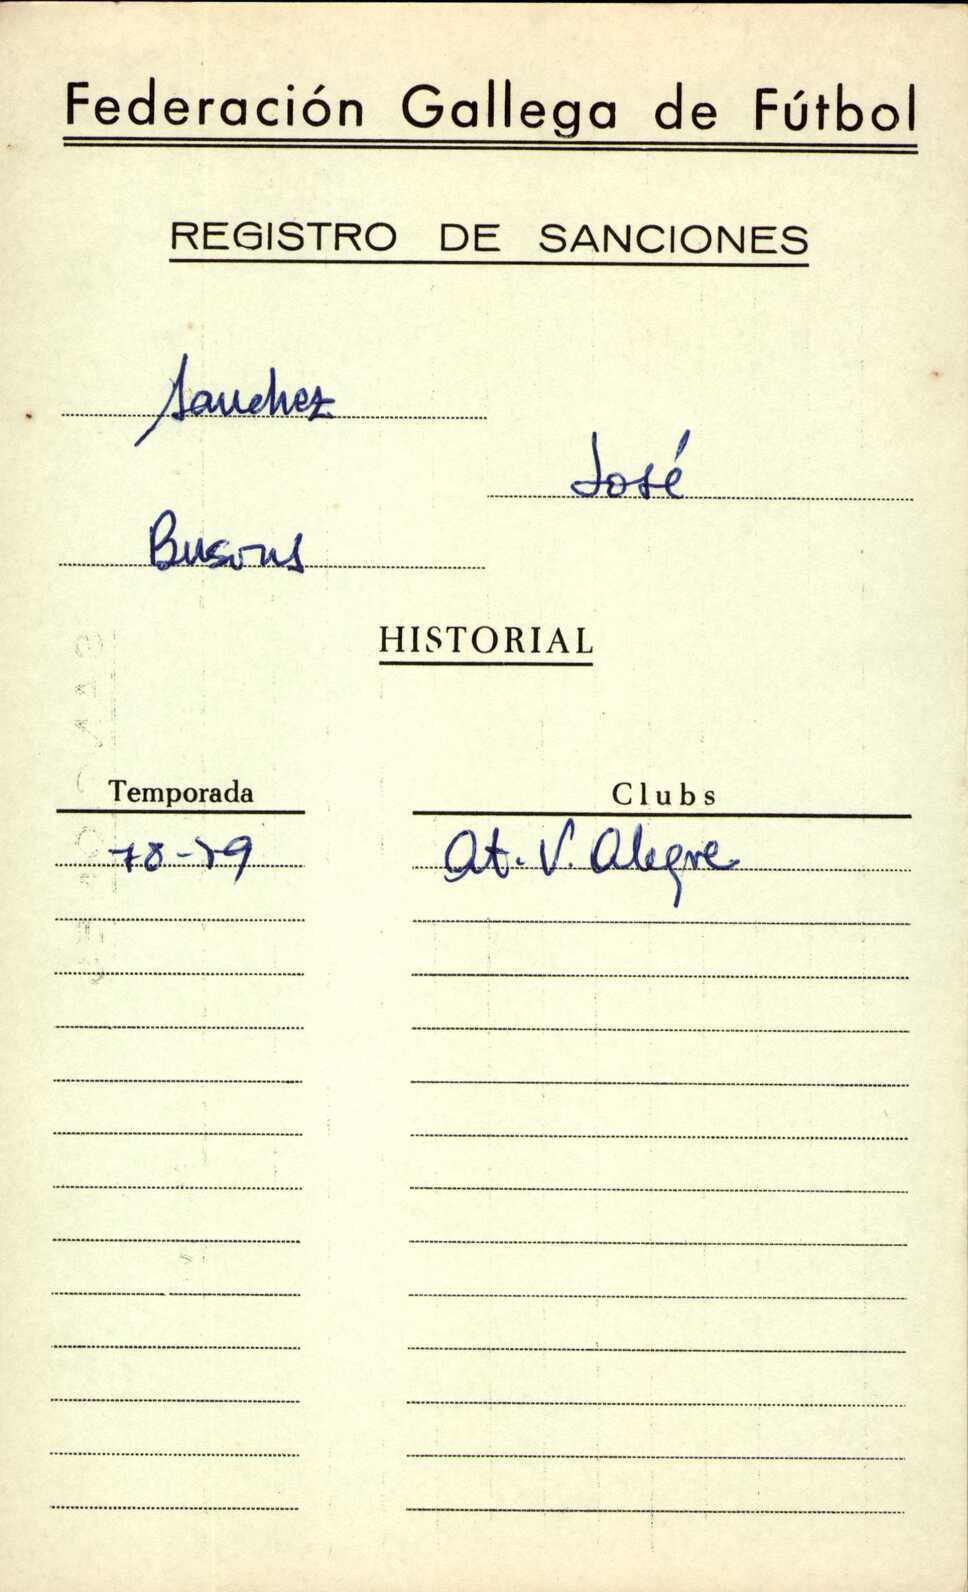 Federación Gallega de Fútbol
REGISTRO DE SANCIONES
Sanchez
José
HISTORIAL
Temporada Clubs
78-79 At. V. Alegre